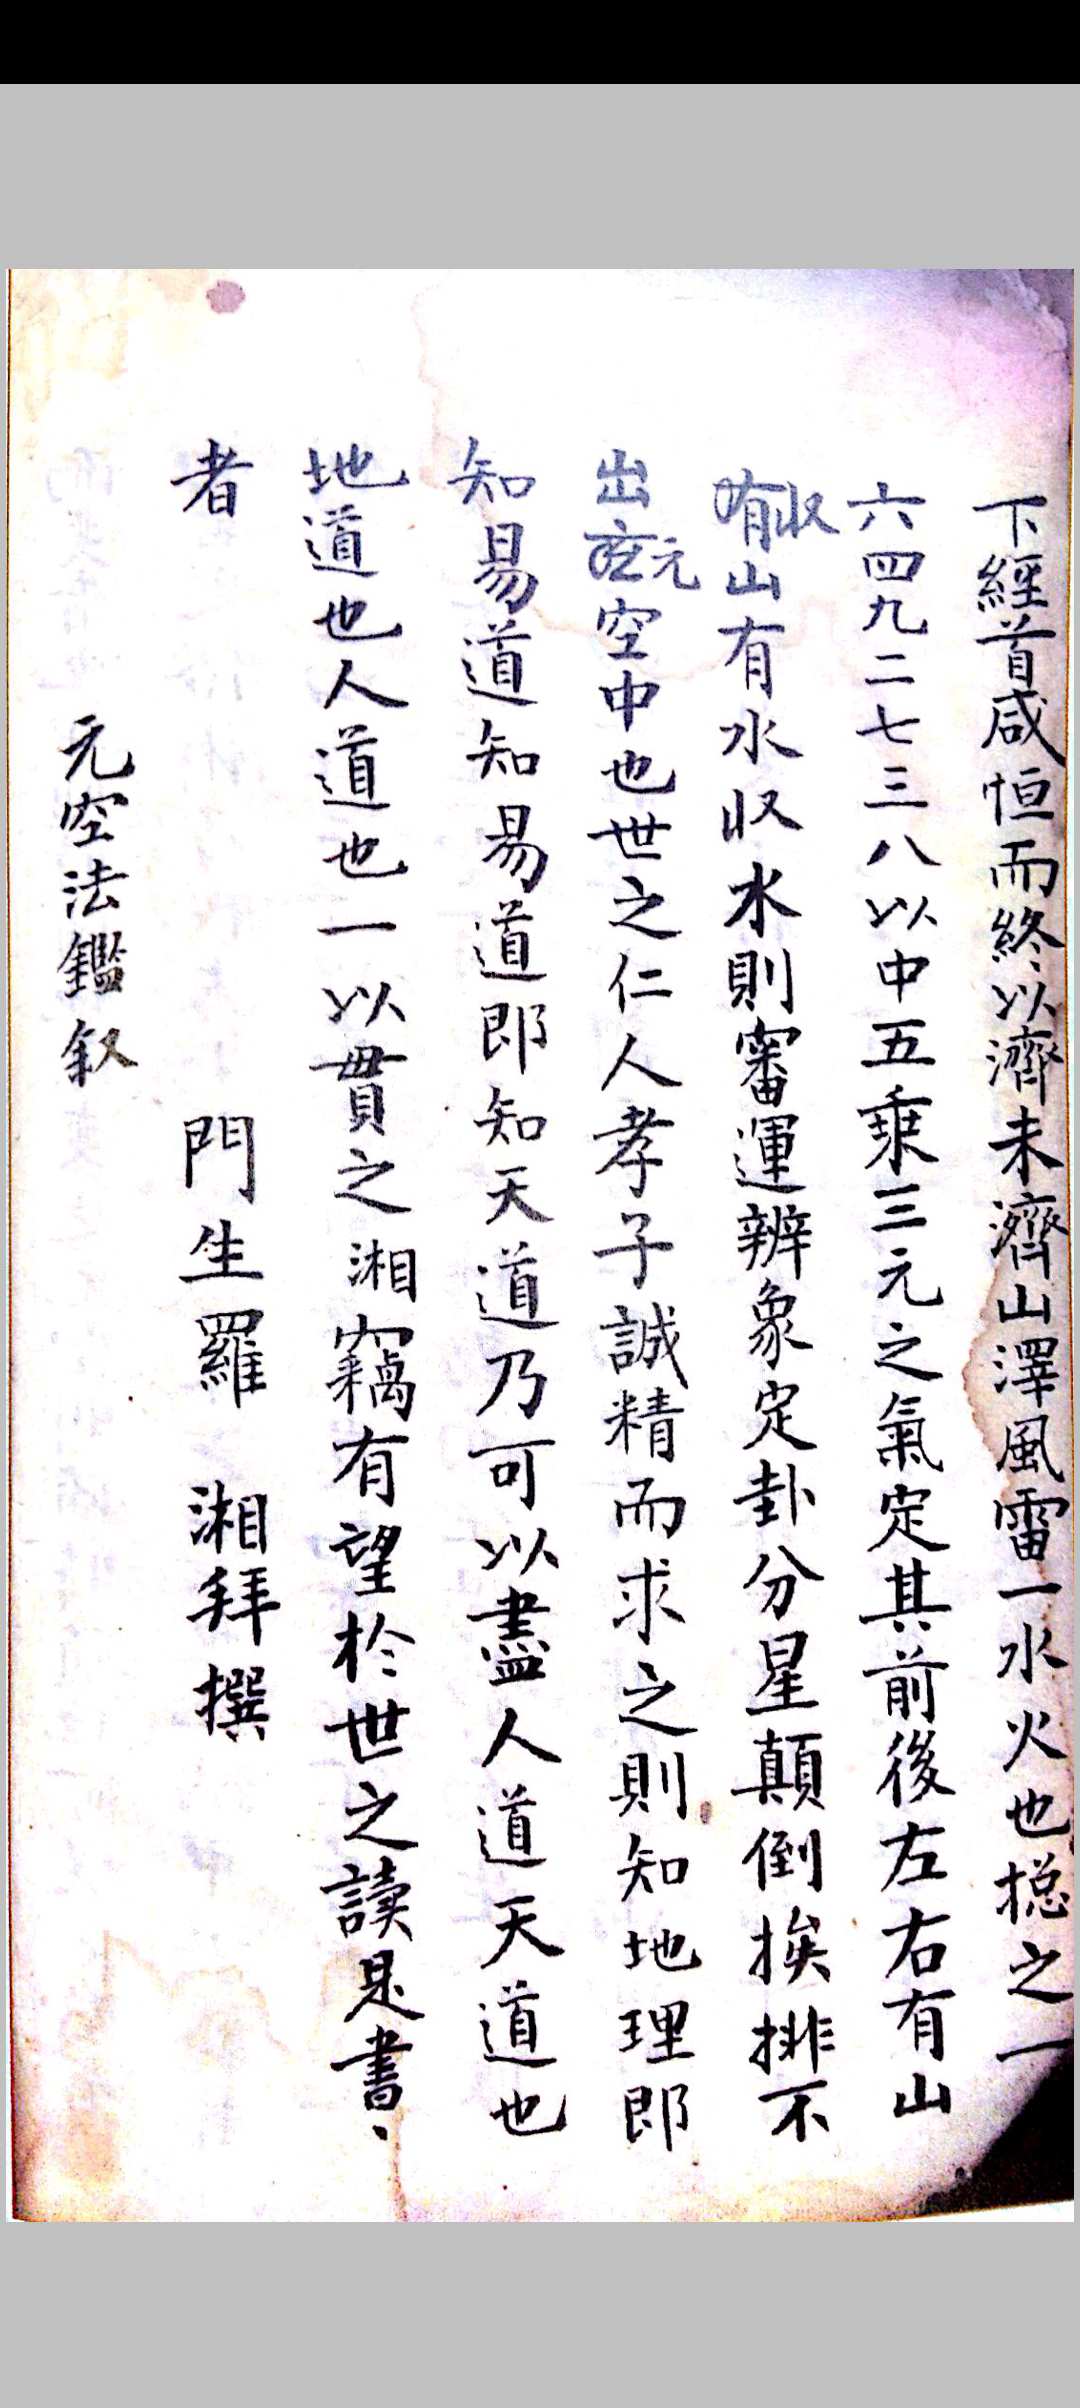 下經首咸恒而終以濟未濟山澤風雷一水火也揔之一
六四九二七三八以中五乘三元之氣定其前後左右有山
收山有水収水則審運辨象定卦分星顛倒挨排不
出元空中也世之仁人孝子誠精而求之則知地理即
知易道知易道即知天道乃可以盡人道天道也
地道也人道也一以貫之湘竊有望於世之讀是書、
者
門生羅 湘拜撰
元空法鑑叙